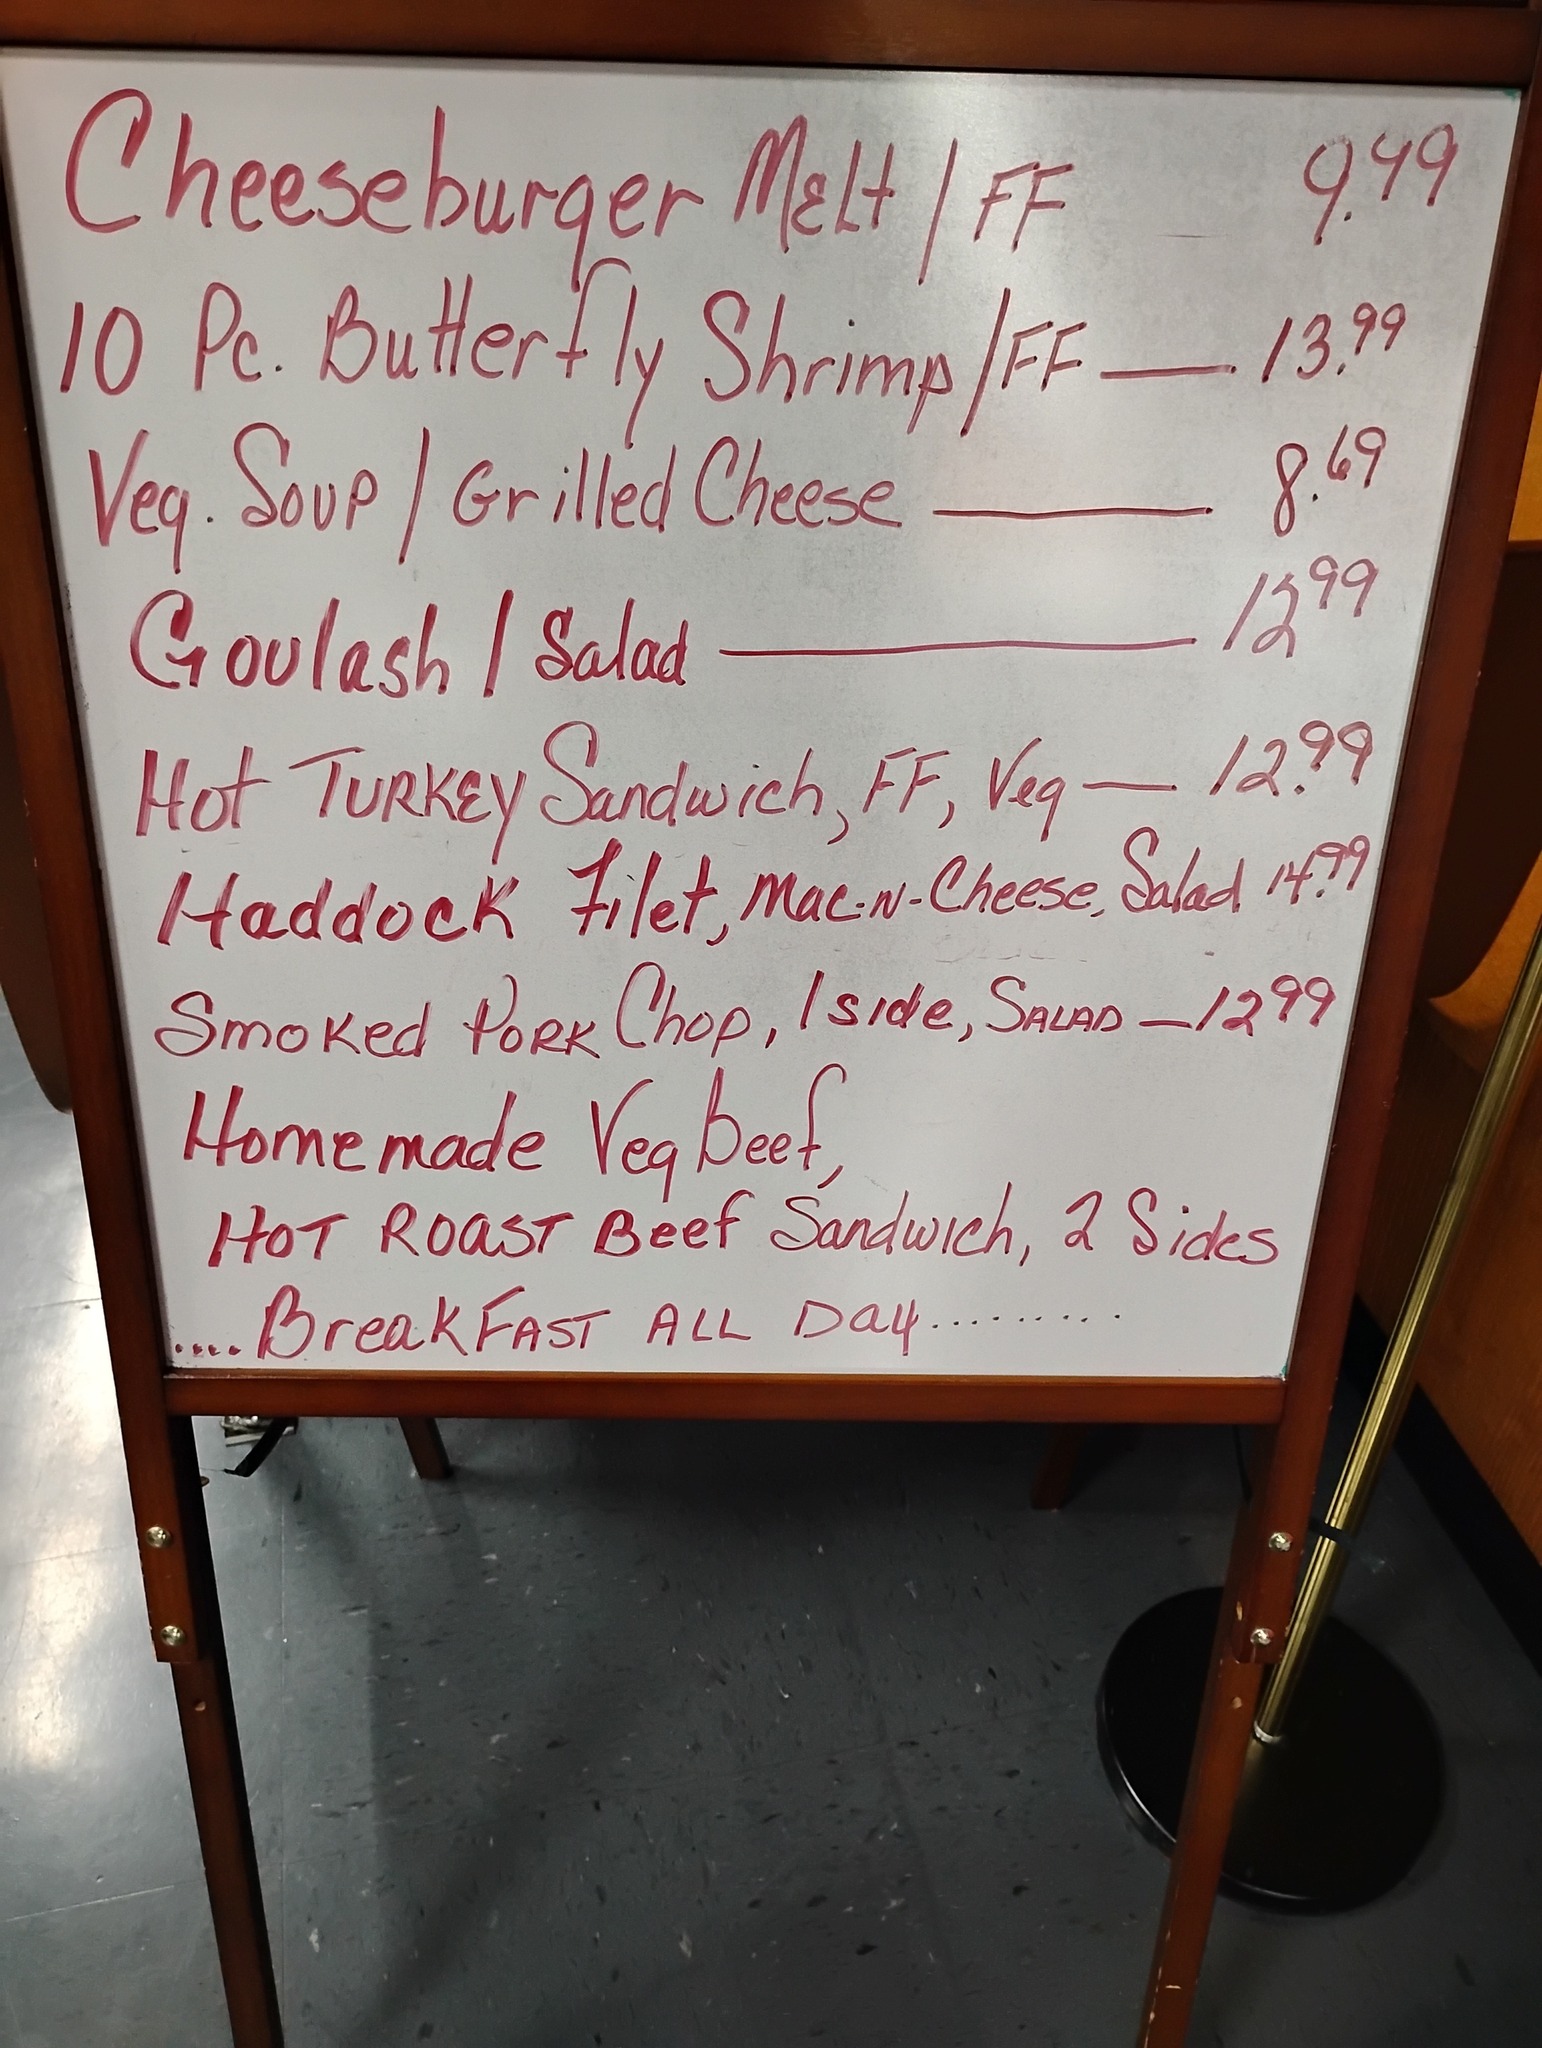 Cheeseburger Melt / FF 9.49
10 Pc. Butterfly Shrimp / FF — 13.99
Veg. Soup / Grilled Cheese — 8.69
Goulash / Salad — 12.99
Hot TURKEY Sandwich, FF, Veg — 12.99
Haddock Filet, Mac-N-Cheese, Salad 14.99
Smoked PORK Chop, 1 side, SALAD — 12.99
Homemade Veg beef,
HOT ROAST Beef Sandwich, 2 Sides
....BreakFAST ALL Day.........